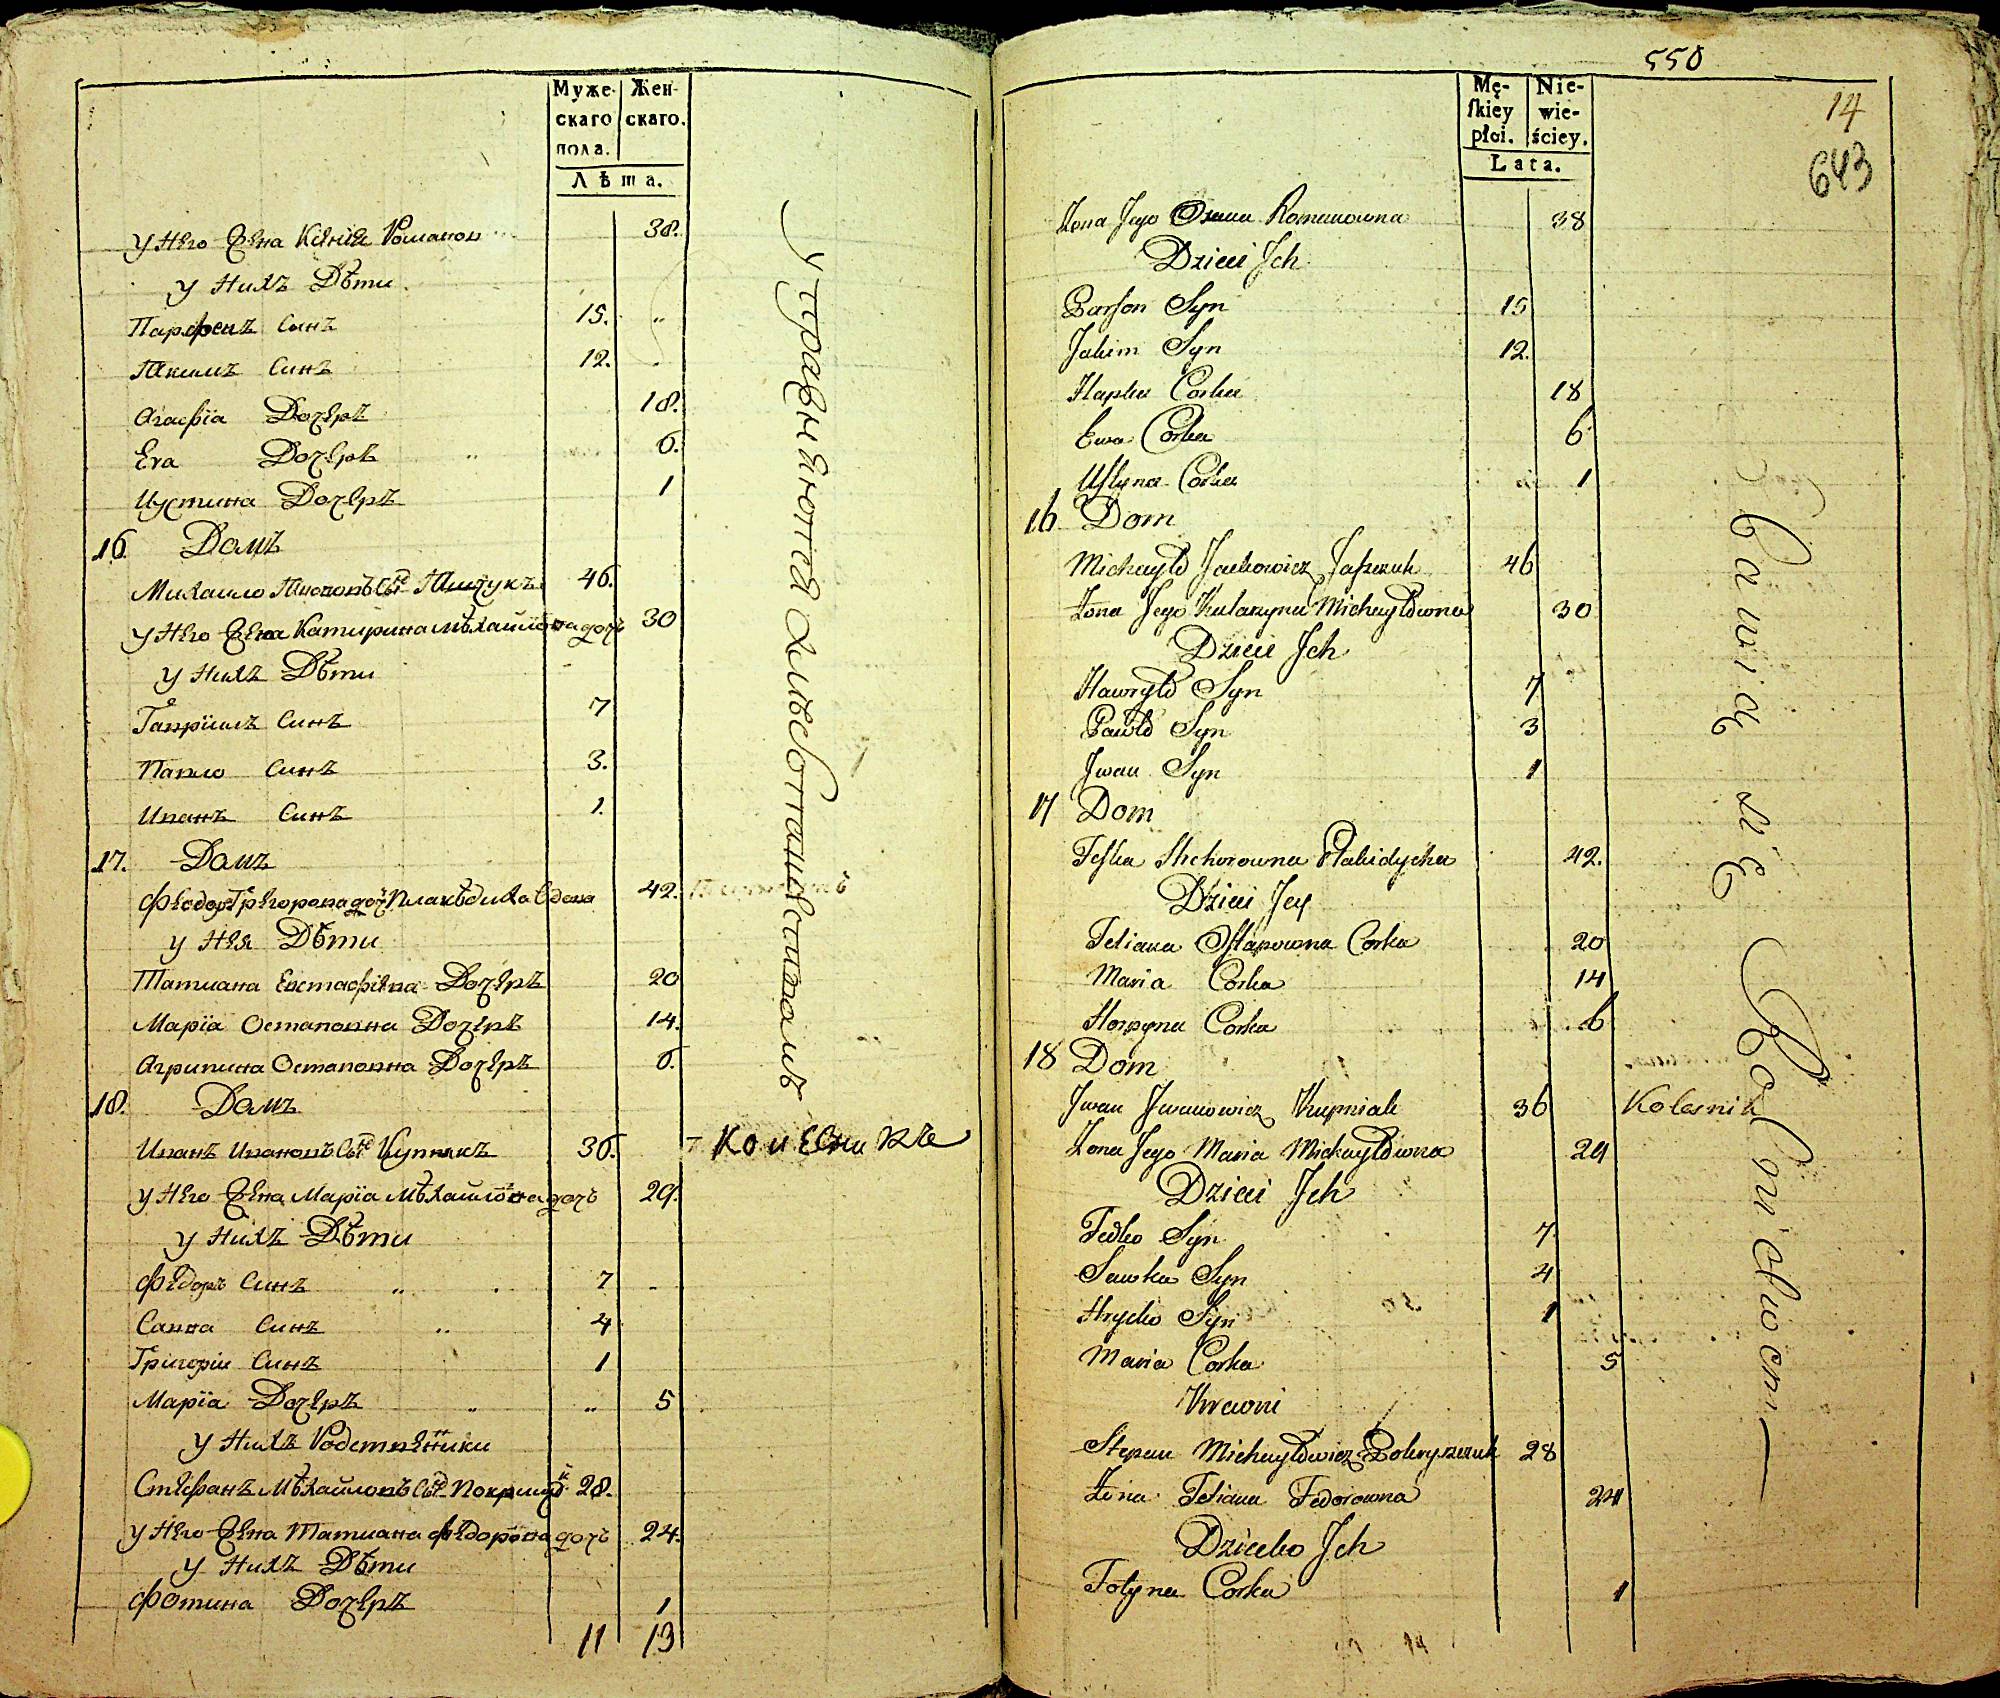 Муже-
скаго
пола.
Жен-
скаго.
Лѣта.
у Него Жена Ксенія Романов 38.
у Нихъ Дѣти
Парфенъ Синъ 15. "
Якимъ Синъ 12.
Агафïа Дочеръ 18.
Ева Дочеръ 6.
Иустина Дочеръ 1
16. Домъ
Михайло Яковов Сынъ 46.
у Него Жена Катирина Мѣхайлова дочъ 30
у Нихъ Дѣти
Гаврïилъ Синъ 7
Павло Синъ 3.
Иванъ Синъ 1.
17. Домъ
Григорева доч Вдова 42.
у Нея Дѣти
Татиана Евстафïева Дочеръ 20
Марïа Остаповна Дочеръ 14.
Агрипина Остаповна Дочеръ 6.
18. Домъ
Иванъ Ивановъ Сынъ Купнякъ 36. - Колесникъ
у Него Жена Марïа Мѣхайлова дочъ 29.
у Нихъ Дѣти
Федоръ Синъ " 7
Савва Синъ " 4
Григорïи Синъ 1
Марïа Дочеръ " " 5
у Нихъ Родственники
Стефанъ Мѣхайловъ Сынъ 28.
у Него Жена Татиана Федорова дочъ 24.
у Нихъ Дѣти
Фотина Дочеръ 1
11 13
упражняются хлѣбопашествомъ
550
14
643
Mę-
ſkiey
płci.
Nie-
wie-
ściey.
Lata.
Żona Jego Romanowna 38
Dzieci Jch
Parfon Syn 15
Jakim Syn 12.
Hapka Corka 18
Ewa Corka 6
Uſtyna Corka 1
16 Dom
Michayło Jackowicz Jaszczuk 46
Żona Jego Katarzyna Michayłowna 30
Dzieci Jch
Hawryło Syn 7
Pawło Syn 3
Jwan Syn 1
17 Dom
42.
Dzieci Jey
Tetiana Oſtapowna Corka 20
Maria Corka 14
Horpyna Corka 6
18 Dom
Jwan Jwanowicz Kupniak 36 Kolesnik
Żona Jego Maria Michayłowna 29
Dzieci Jch
Fedko Syn 7
Sawka Syn 4
Hrycko Syn 1
Maria Corka 5
Krewni
Stepan Michayłowicz 28
Żona Tetiana Fedorowna 24
Dziecko Jch
Fotyna Corka 1
Bawią się Rolnictwem